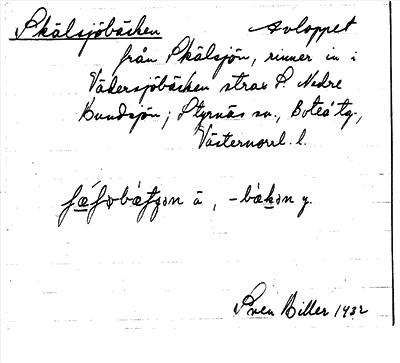 Skälsjöbäcken Avloppet
från Skälsjön, rinner in i
Vädersjöbäcken strax S. Nedre
Bundsjön; Styrnäs sn., Boteå tg.,
Västernorrl. l.
ä, -bækən y.
Sven Biller 1932